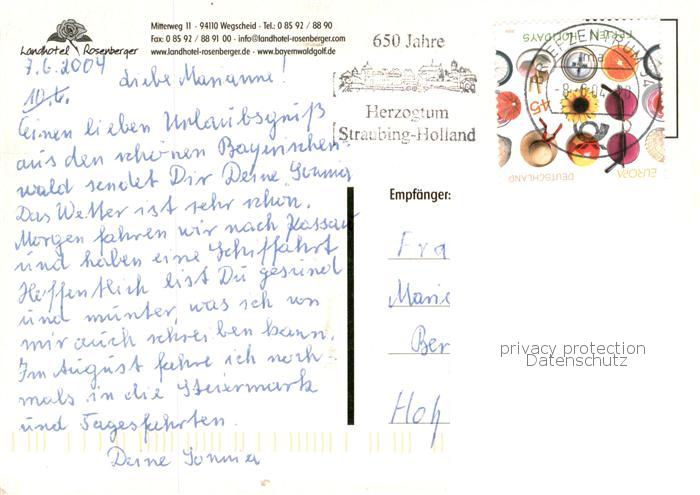 Landhotel Rosenberger
Mitterweg 11 · 94110 Wegscheid · Tel.: 0 85 92 / 88 90
Fax: 0 85 92 / 88 91 00 · info@landhotel-rosenberger.com
www.landhotel-rosenberger.de · www.bayernwaldgolf.de
7.6.2004
10.6.
Liebe Marianne!
Einen lieben Urlaubsgruß
aus den schönen Bayrischen
wald sendet Dir Deine
Das Wetter ist sehr schön.
Morgen fahren wir nach Passau
und haben eine Schiffahrt
Hoffentlich bist Du gesund
und munter, was ich von
mir auch schreiben kann.
Im August fahre ich noch
mals in die Steiermark
und Tagesfahrten.
Deine
650 Jahre
Herzogtum
Straubing-Holland
FERIEN HOLIDAYS
BRIEFZENTRUM
45
DEUTSCHLAND
EUROPA
Empfänger:
Fra
Marie
Ber
Hof
privacy protection
Datenschutz